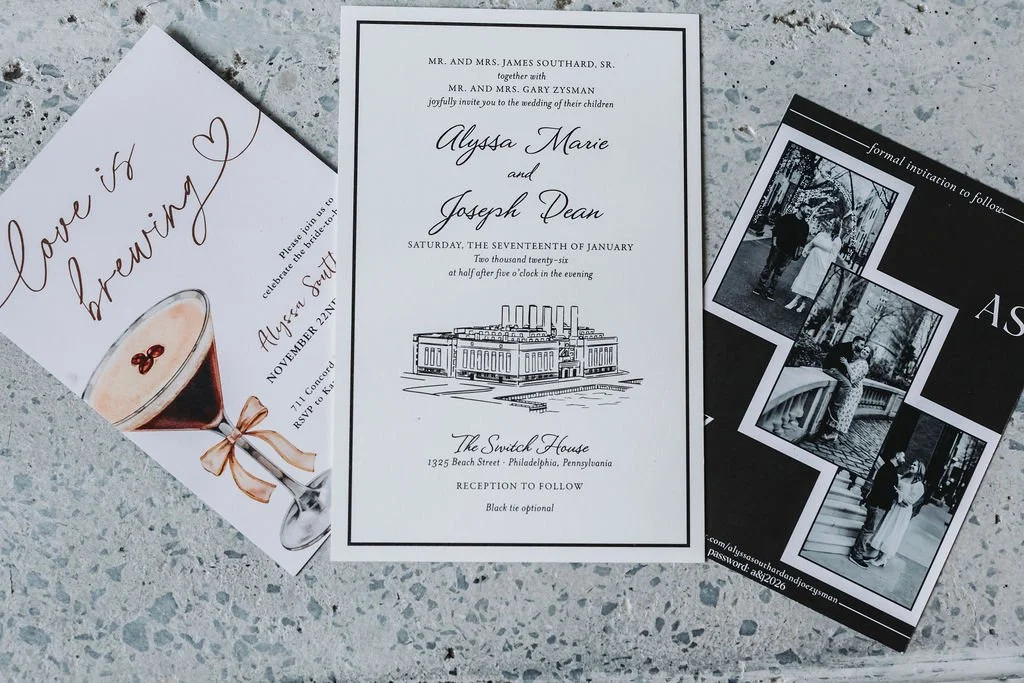 love is
brewing
Please join us to
celebrate the bride-to-b
Alyssa Sout
NOVEMBER 22ND
711 Concord
RSVP to Ka
MR. AND MRS. JAMES SOUTHARD, SR.
together with
MR. AND MRS. GARY ZYSMAN
joyfully invite you to the wedding of their children
Alyssa Marie
and
Joseph Dean
SATURDAY, THE SEVENTEENTH OF JANUARY
Two thousand twenty-six
at half after five o'clock in the evening
The Switch House
1325 Beach Street · Philadelphia, Pennsylvania
RECEPTION TO FOLLOW
Black tie optional
formal invitation to follow
AS
.com/alyssasouthardandjoezysman
password: a&j2026